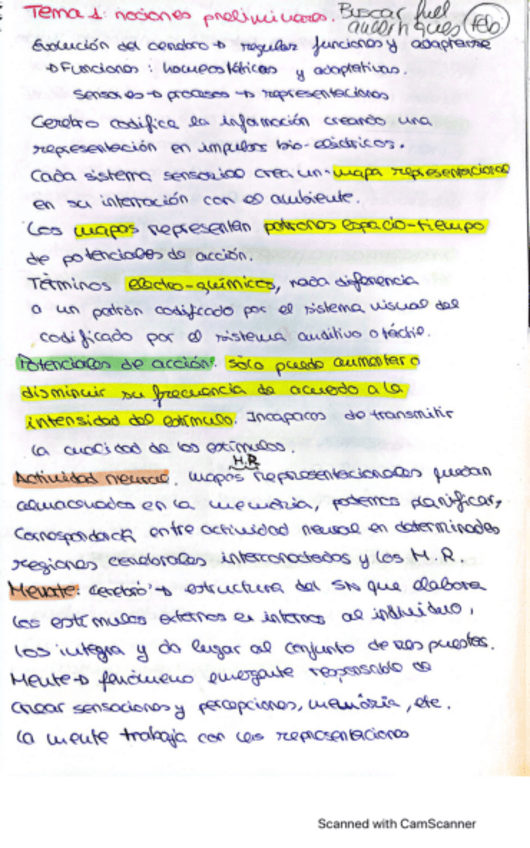 Tema 1: nociones preliminares. Buscar fuel
Evolución del cerebro → regular funciones y adaptarse
→ Funciones: homeostáticas y adaptativas.
Sensores → procesos → representaciones
Cerebro codifica la información creando una
representación en impulsos bio-eléctricos.
Cada sistema sensorial crea un mapa representacional
en su interacción con el ambiente.
Los mapas representan patrones espacio-tiempo
de potenciales de acción.
Términos electro-químicos, nada diferencia
a un patrón codificado por el sistema visual del
codificado por el sistema auditivo o táctil.
Potenciales de acción: sólo puede aumentar o
disminuir su frecuencia de acuerdo a la
intensidad del estímulo. Incapaces de transmitir
la cualidad de los estímulos.
M.R
Actividad neural. mapas representacionales puedan
almacenados en la memoria, podemos planificar,
Correspondencia entre actividad neural en determinadas
regiones cerebrales interconectadas y los M.R.
Mente: cerebro → estructura del SN que elabora
los estímulos externos e internos al individuo,
los integra y da lugar al conjunto de respuestas.
Mente → fenómeno emergente responsable de
crear sensaciones y percepciones, memoria, etc.
La mente trabaja con las representaciones
Scanned with CamScanner